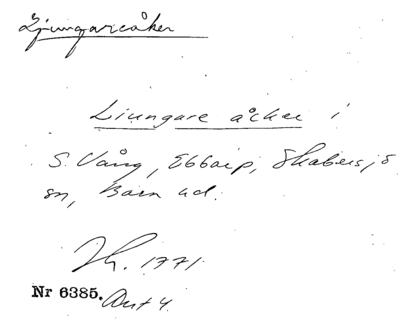 Ljungaråker
Liungare åcker i
S. Vång, Ebbarp, Skabersjö
sn, Bara hd.
Th. 1771.
Nr 6385. Akt 4